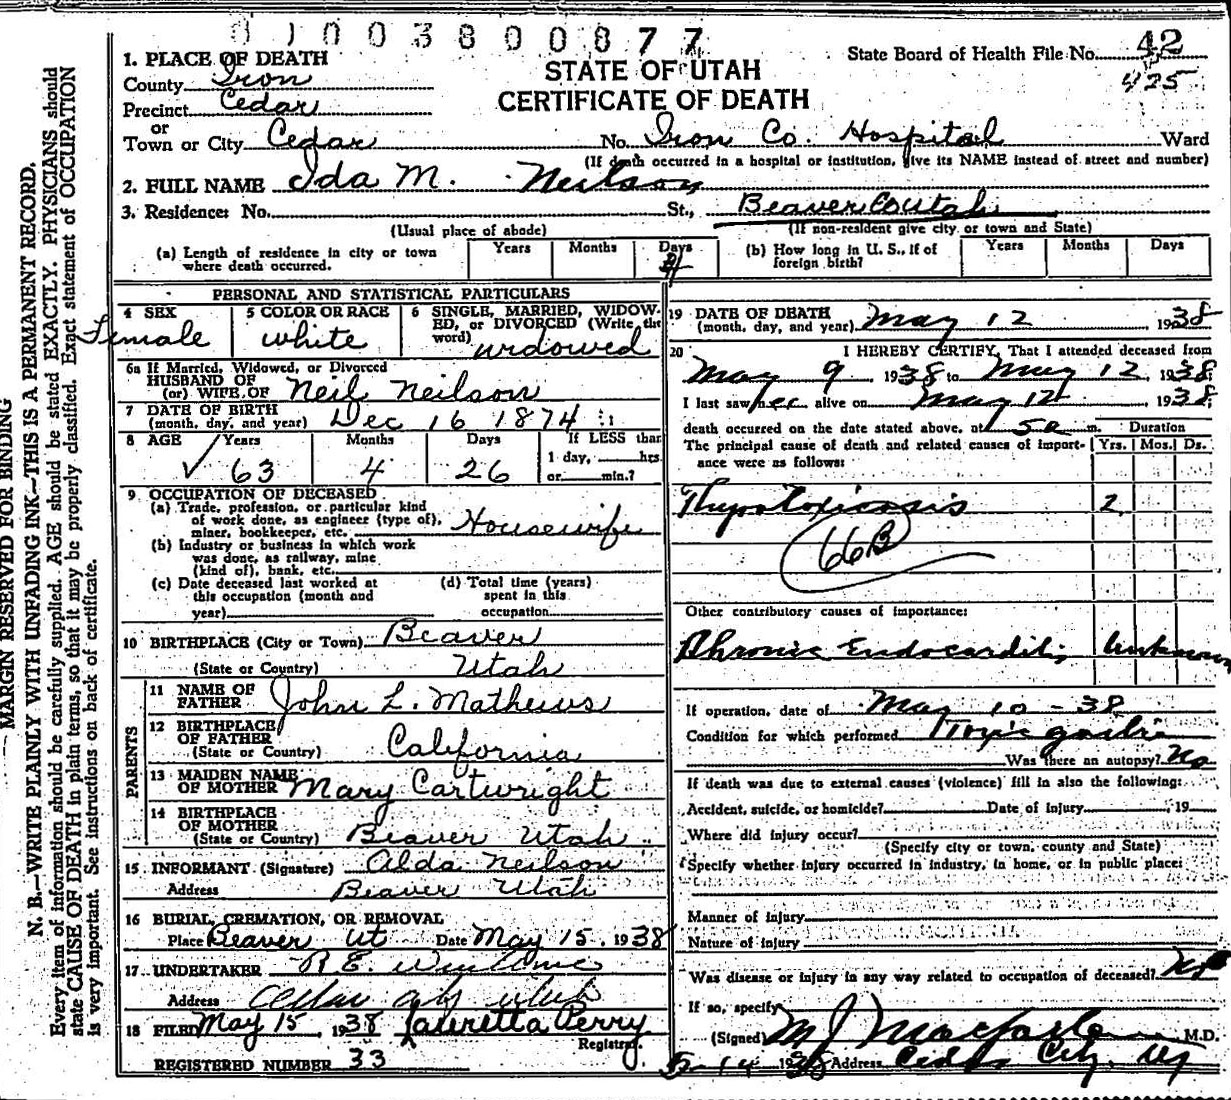 0100380087 7
State Board of Health File No. 42
425
STATE OF UTAH
CERTIFICATE OF DEATH
1. PLACE OF DEATH
County Iron
Precinct Cedar
or
Town or City Cedar No. Iron Co. Hospital Ward
(If death occurred in a hospital or institution, give its NAME instead of street and number)
2. FULL NAME Ida M. Neilson
3. Residence: No. St., Beaver Co Utah
(Usual place of abode) (If non-resident give city or town and State)
(a) Length of residence in city or town where death occurred. Years Months Days
(b) How long in U. S., if of foreign birth? Years Months Days
PERSONAL AND STATISTICAL PARTICULARS
4 SEX Female
5 COLOR OR RACE white
6 SINGLE, MARRIED, WIDOWED, or DIVORCED (Write the word) widowed
6a If Married, Widowed, or Divorced
HUSBAND OF
(or) WIFE OF Neil Neilson
7 DATE OF BIRTH
(month, day, and year) Dec 16 1874
8 AGE Years Months Days If LESS than
1 day, hrs.
or min.?
✓ 63 4 26
9 OCCUPATION OF DECEASED
(a) Trade, profession, or particular kind
of work done, as engineer (type of),
miner, bookkeeper, etc. Housewife
(b) Industry or business in which work
was done, as railway, mine
(kind of), bank, etc.
(c) Date deceased last worked at
this occupation (month and
year)
(d) Total time (years)
spent in this
occupation
10 BIRTHPLACE (City or Town) Beaver
(State or Country) Utah
PARENTS
11 NAME OF
FATHER John L. Mathews
12 BIRTHPLACE
OF FATHER
(State or Country) California
13 MAIDEN NAME
OF MOTHER Mary Cartwright
14 BIRTHPLACE
OF MOTHER
(State or Country) Beaver Utah
15 INFORMANT (Signature) Alda Neilson
Address Beaver Utah
16 BURIAL, CREMATION, OR REMOVAL
Place Beaver Ut Date May 15, 1938
17 UNDERTAKER R.E.
Address Cedar City Utah
18 FILED May 15 1938 Lauretta Perry
Registrar.
REGISTERED NUMBER 33
19 DATE OF DEATH
(month, day, and year) May 12 1938
20 I HEREBY CERTIFY, That I attended deceased from
May 9 1938 to May 12, 1938
I last saw her alive on May 12 1938;
death occurred on the date stated above, at 5 a m. Duration
The principal cause of death and related causes of importance were as follows: Yrs. Mos. Ds.
Thyrotoxicosis 2
66B
Other contributory causes of importance:
Chronic Endocarditis Unknown
If operation, date of May 10 - 38
Condition for which performed Toxic goitre
Was there an autopsy? No
If death was due to external causes (violence) fill in also the following:
Accident, suicide, or homicide? Date of injury 19
Where did injury occur?
(Specify city or town, county and State)
Specify whether injury occurred in industry, in home, or in public place:
Manner of injury
Nature of injury
Was disease or injury in any way related to occupation of deceased? No
If so, specify
(Signed) M J Macfarlane M.D.
5-14 1938 Address Cedar City, Ut
MARGIN RESERVED FOR BINDING
N. B.—WRITE PLAINLY WITH UNFADING INK—THIS IS A PERMANENT RECORD.
Every item of information should be carefully supplied. AGE should be stated EXACTLY. PHYSICIANS should
state CAUSE OF DEATH in plain terms, so that it may be properly classified. Exact statement of OCCUPATION
is very important. See instructions on back of certificate.